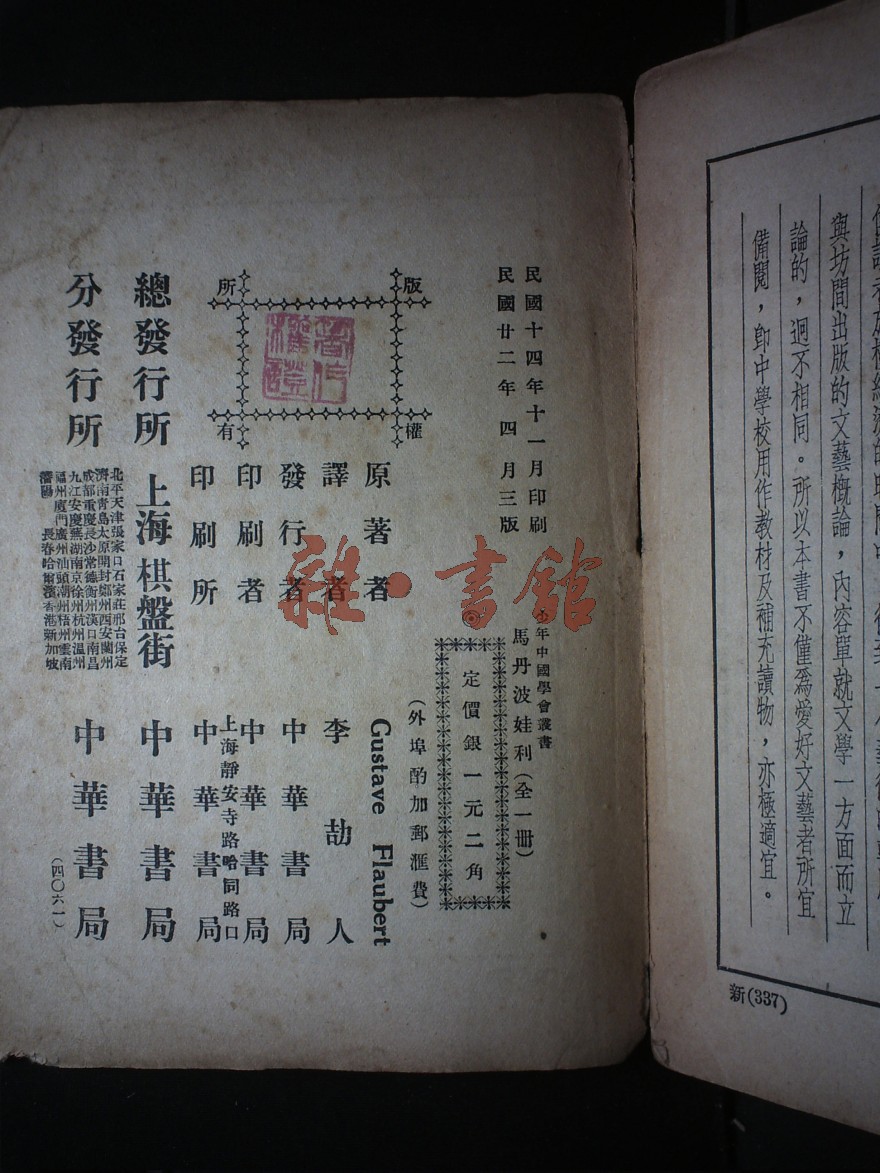 備讀者於極經濟的時間中
與坊間出版的文藝概論，內容單就文學一方面而立
論的，迥不相同。所以本書不僅爲愛好文藝者所宜
備閱，卽中學校用作教材及補充讀物，亦極適宜。
新(337)
民國十四年十一月印刷
民國廿二年四月三版
少年中國學會叢書
馬丹波娃利（全一冊）
定價銀一元二角
（外埠酌加郵匯費）
版權所有
著作權證
原著者 Gustave Flaubert
譯者 李劼人
發行者 中華書局
印刷者 中華書局
印刷所 上海靜安寺路哈同路口 中華書局
總發行所 上海棋盤街 中華書局
分發行所 中華書局
北平天津張家口石家莊邢台保定
濟南青島太原開封鄭州西安蘭州
成都重慶長沙常德衡州漢口南昌
九江安慶蕪湖南京徐州杭州溫州
福州廈門廣州汕頭潮州梧州雲南
瀋陽長春哈爾濱香港新加坡
（四〇六一）
雜·書館